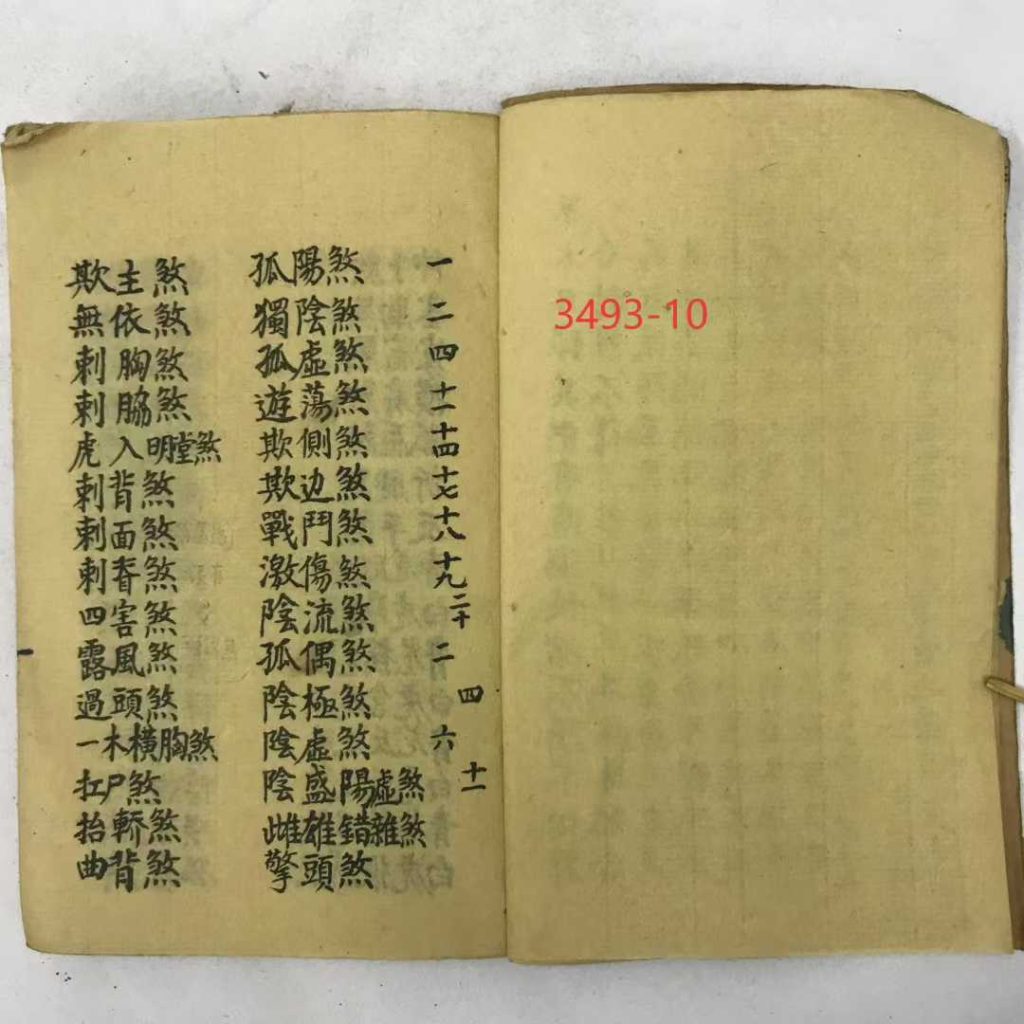 孤陽煞 一
獨陰煞 二
孤虛煞 四
遊蕩煞 十一
欺側煞 十四
欺边煞 十七
戰鬥煞 十八
激傷煞 十九
陰流煞 二十
孤偶煞 二
陰極煞 四
陰虛煞 六
陰盛陽虛煞 十一
雌雄錯雜煞
擎頭煞
欺主煞
無依煞
刺胸煞
刺脇煞
虎入明堂煞
刺背煞
刺面煞
刺脊煞
四害煞
露風煞
過頭煞
一木橫胸煞
扛尸煞
抬轎煞
曲背煞
3493-10